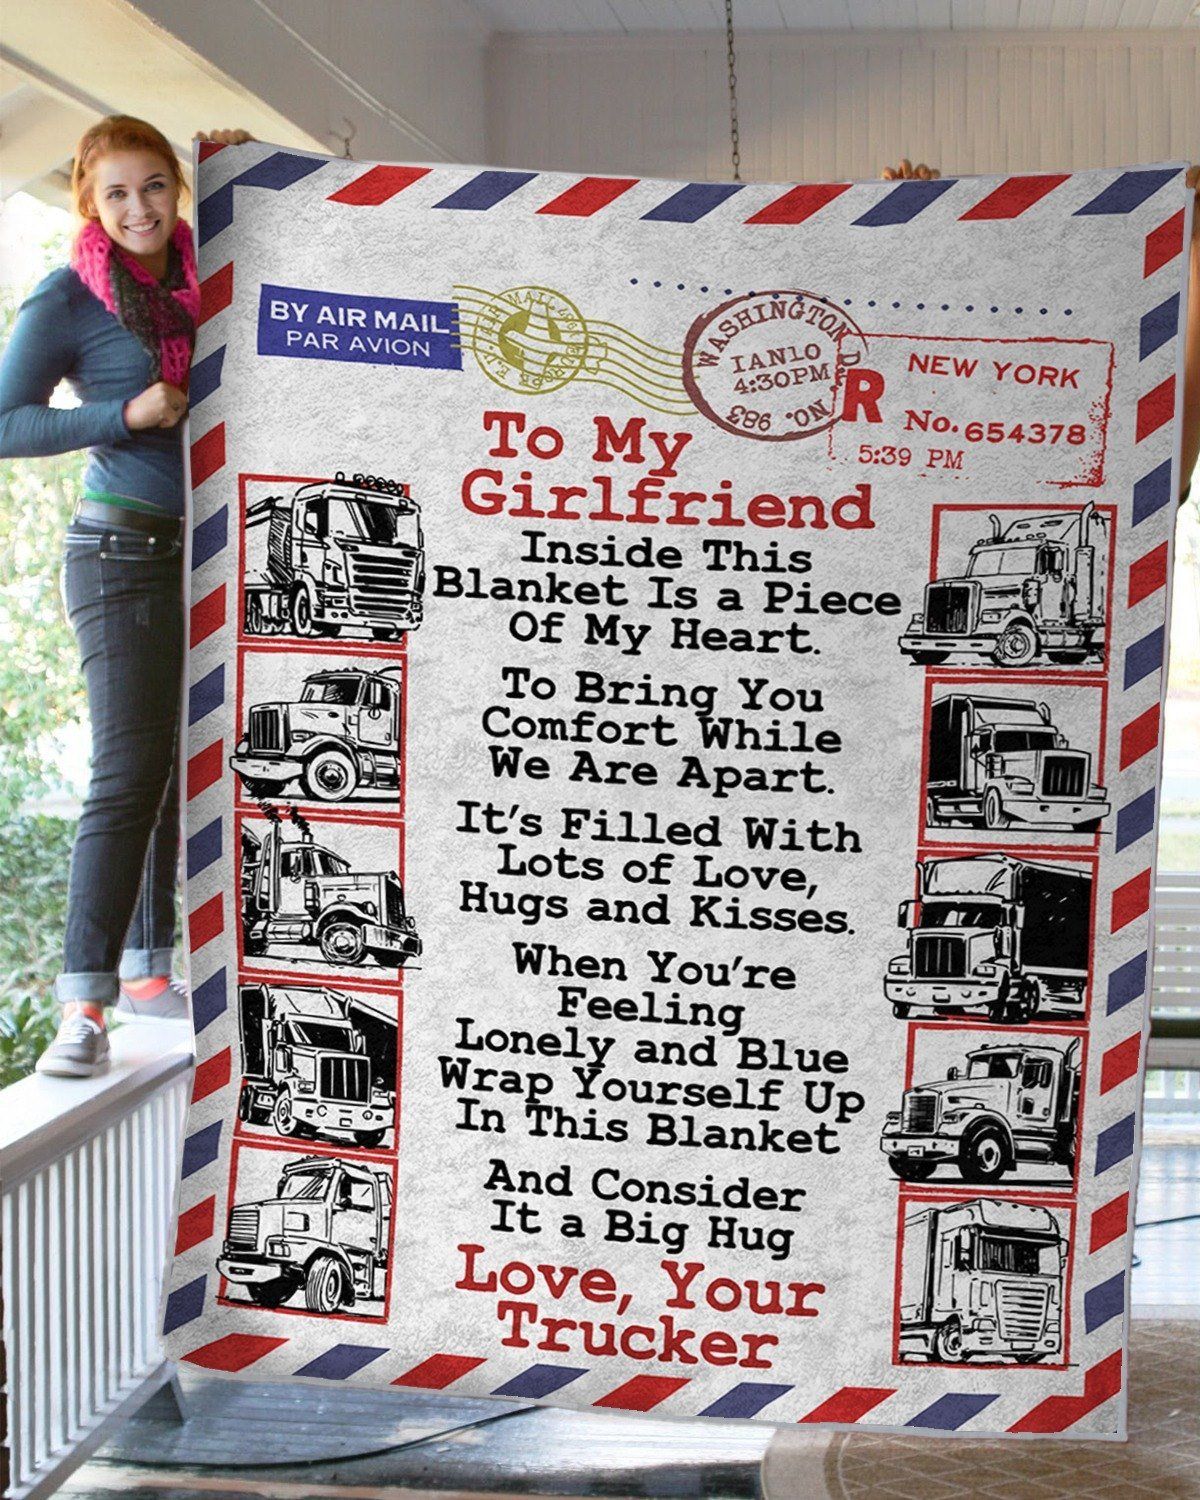 BY AIR MAIL
PAR AVION
WASHINGTON D.C.
IAN10
4:30PM
NO. 983
R
NEW YORK
No. 654378
5:39 PM
To My
Girlfriend
Inside This
Blanket Is a Piece
Of My Heart.
To Bring You
Comfort While
We Are Apart.
It's Filled With
Lots of Love,
Hugs and Kisses.
When You're
Feeling
Lonely and Blue
Wrap Yourself Up
In This Blanket
And Consider
It a Big Hug
Love, Your
Trucker